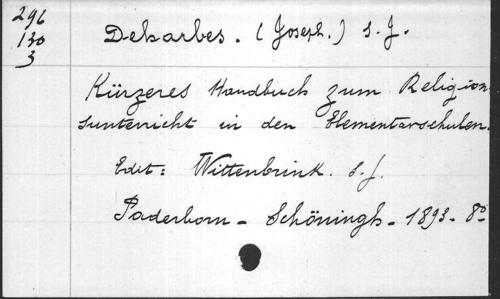 296
130
3
Deharbes. (Joseph.) S. J.
Kürzeres Handbuch zum Religion
sunterricht in den Elementarschulen.
Edit: Wittenbrink. S. J.
Paderborn - Schöningh - 1893 - 8°